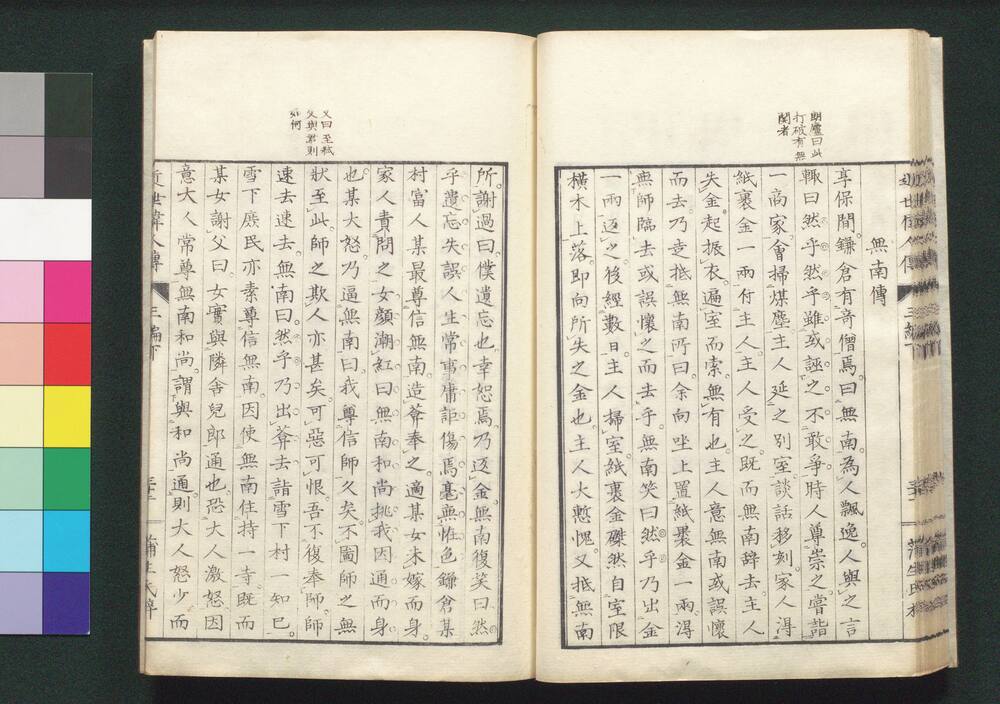 明廬曰此
打破有無
関者
無南傳
享保間。鎌倉有竒僧焉。曰無南。為人飄逸。人與之言
輙曰然乎然乎。雖或誣之不敢爭。時人尊崇之。嘗詣
一商家。會掃煤塵。主人延之別室。談話移刻。家人淂
紙裹金一兩。付主人。主人受之。既而無南辞去。主人
失金。起振衣。遍室而索。無有也。主人意無南或誤懐
而去。乃走抵無南所曰。余向坐上置紙裹金一兩。淂
無師臨去或誤懐之而去乎。無南笑曰。然乎。乃出金
一兩返之。後經數日。主人掃室。紙裹金磔然自室限
橫木上落。即向所失之金也。主人大慙愧。又抵無南
又曰至弑
父與君則
如何
所。謝過曰。僕遺忘也。幸恕焉。乃返金。無南復笑曰。然
乎。遺忘失誤。人生常事。庸詎傷焉。毫無恠色。鎌倉某
村富人某。最尊信無南。造菴奉之。適某女未嫁而身。
家人責問之。女顔潮紅曰。無南和尚挑我。因通而身
也。某大怒。乃逼無南曰。我尊信師久矣。不圖師之無
狀至此。師之欺人亦甚矣。可惡可恨。吾不復奉師。師
速去速去。無南曰。然乎。乃出菴去。詣雪下村一知巳。
雪下庶民亦素尊信無南。因使無南住持一寺。既而
某女謝父曰。女實與隣舍兒郎通也。恐大人激怒。因
意大人常尊無南和尚。謂與和尚通。則大人怒少。而
近世偉人傳
三編下
三十二
蒲生氏梓